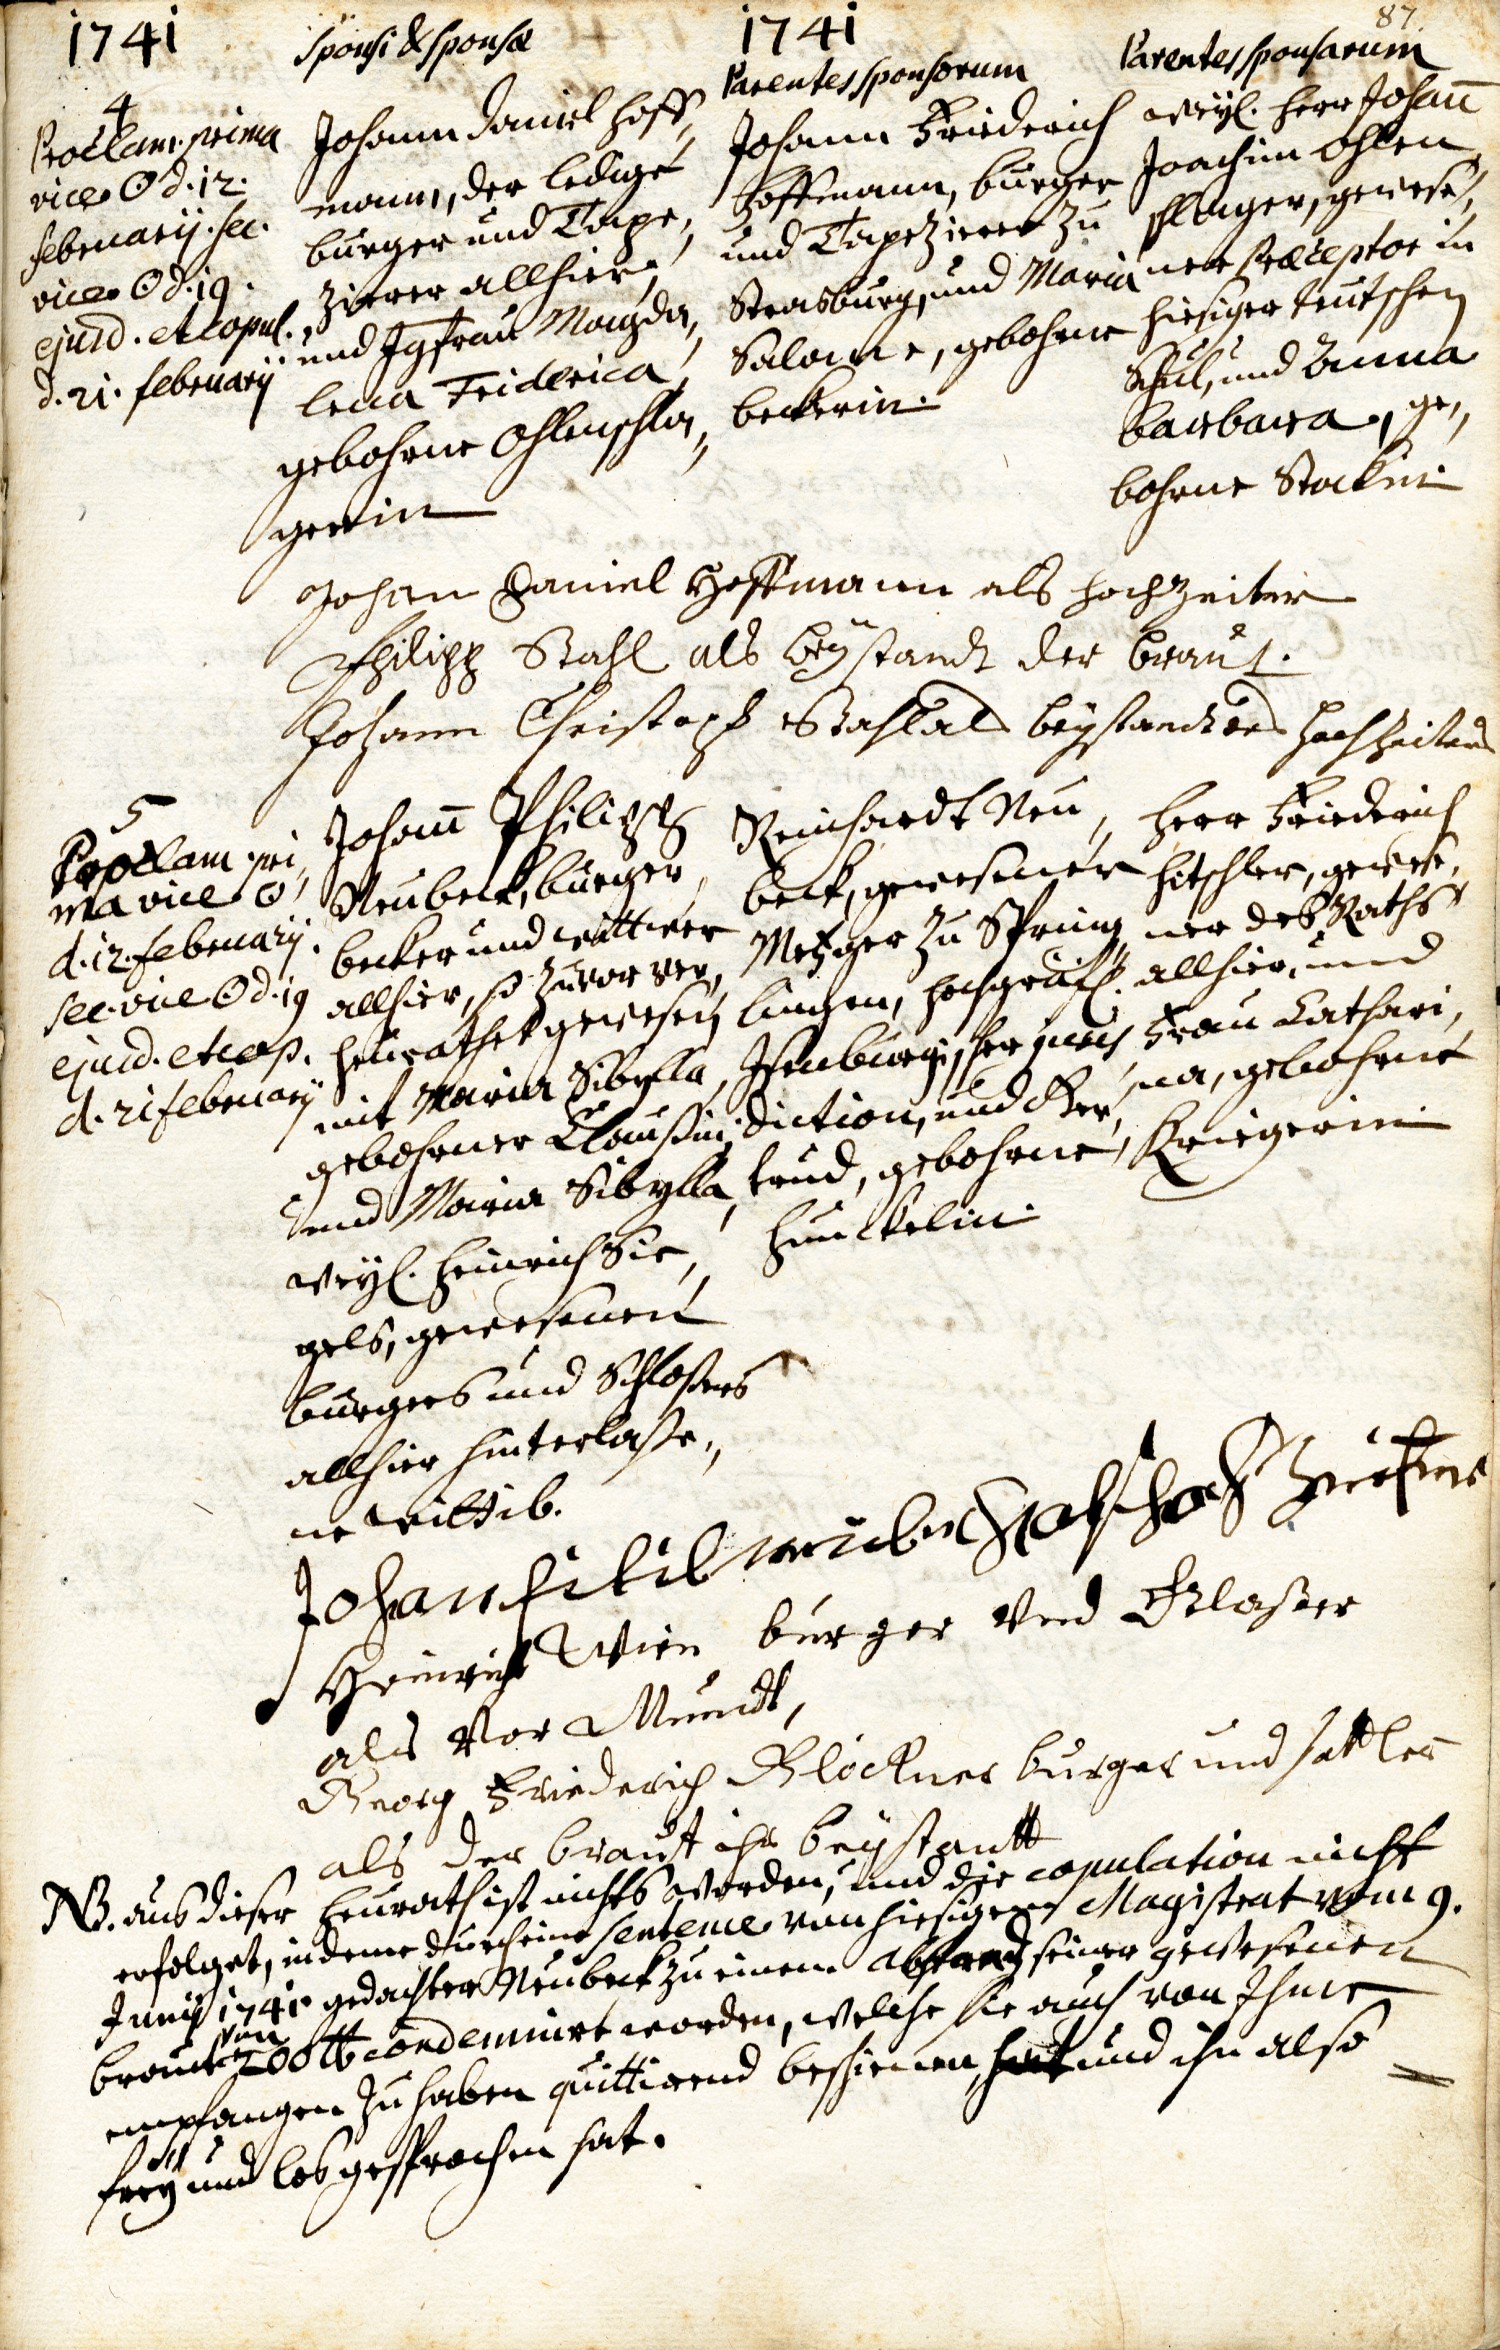 87.
1741
Sponsi & Sponsæ
1741
Parentes Sponsorum
Parentes Sponsarum
4
Proclam. prima
vice ☉ d. 12.
februarij. sec.
vice ☉ d. 19.
ejusd. et copul.
d. 21. februarij
Johann Daniel Hoff„
mann, der ledige
burger und Tape„
zierer allhier,
und Jgfrau Magda„
lena Friderica,
gebohrne Ohlenschla„
gerin
Johann Friederich
Hoffmann, burger
und Tapezierer zu
Strasburg, und Maria
Salome, gebohrne
beckerin.
weyl. Herr Johan̄
Joachim Ohlen„
schlager, gewese„
ner Præceptor in
hiesiger teutschen
Schul, und Anna
barbara, ge„
bohrne Stockin.
Johan Daniel Hoffmann als hochzeiter
Philipp Stahl als beystandt der braut.
Johann Christoph Stahl als beystandt des Hochzeiters
5
Proclam. pri„
ma vice ☉
d. 12. februarij.
sec. vice ☉ d. 19
ejusd. et cop.
d. 21 februarij
Johan̄ Philipp
Neubeck, burger,
becker und wittwer
allhier, so zuvor ver„
heurathet gewesen
mit Maria Sibylla,
gebohrner Claußin;
und Maria Sibylla,
weyl. Heinrich Sie„
gels, gewesenen
burgers und Schloßers
allhier hinterlaße„
ne wittib.
Reinhardt Neu„
beck, gewesener
Metzger zu Sprend„
lingen, hochgräfl.
Isenburgischer juris
diction, und Ger„
trud, gebohrne
Hunckelin.
Herr Friederich
Hitschler, gewese„
ner des Raths
allhier, und
Frau Cathari„
na, gebohrne
Kriegerin
Johan
Heinrich Wien burger und Glaßer
als Vor Mundt,
Georg Friederich Glöckner burger und sattler
als der braut ihr beystantt
NB. aus dieser Heurath ist nichts worden, und die copulation nicht
erfolget, indeme durch eine Sentence von hiesigem Magistrat vom 9.
Junij 1741. gedachter Neubeck zu einem Abstand seiner gewesenen
braut von 200 ℔ condemnirt worden, welche sie auch von Ihme
empfangen zu haben quittirend beschienen, hat und ihn also
frey und los gesprochen hat.